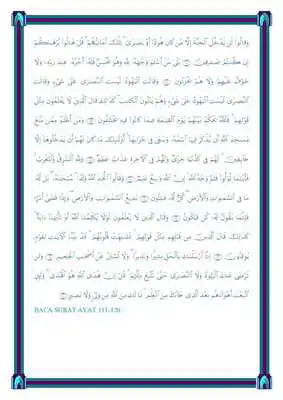 وَقَالُوا۟ لَن يَدْخُلَ ٱلْجَنَّةَ إِلَّا مَن كَانَ هُودًا أَوْ نَصَٰرَىٰ ۗ تِلْكَ أَمَانِيُّهُمْ ۗ قُلْ هَاتُوا۟ بُرْهَٰنَكُمْ
إِن كُنتُمْ صَٰدِقِينَ ۝ بَلَىٰ مَنْ أَسْلَمَ وَجْهَهُۥ لِلَّهِ وَهُوَ مُحْسِنٌ فَلَهُۥٓ أَجْرُهُۥ عِندَ رَبِّهِۦ وَلَا
خَوْفٌ عَلَيْهِمْ وَلَا هُمْ يَحْزَنُونَ ۝ وَقَالَتِ ٱلْيَهُودُ لَيْسَتِ ٱلنَّصَٰرَىٰ عَلَىٰ شَىْءٍ وَقَالَتِ
ٱلنَّصَٰرَىٰ لَيْسَتِ ٱلْيَهُودُ عَلَىٰ شَىْءٍ وَهُمْ يَتْلُونَ ٱلْكِتَٰبَ ۗ كَذَٰلِكَ قَالَ ٱلَّذِينَ لَا يَعْلَمُونَ مِثْلَ
قَوْلِهِمْ ۚ فَٱللَّهُ يَحْكُمُ بَيْنَهُمْ يَوْمَ ٱلْقِيَٰمَةِ فِيمَا كَانُوا۟ فِيهِ يَخْتَلِفُونَ ۝ وَمَنْ أَظْلَمُ مِمَّن مَّنَعَ
مَسَٰجِدَ ٱللَّهِ أَن يُذْكَرَ فِيهَا ٱسْمُهُۥ وَسَعَىٰ فِى خَرَابِهَآ ۚ أُو۟لَٰٓئِكَ مَا كَانَ لَهُمْ أَن يَدْخُلُوهَآ إِلَّا
خَآئِفِينَ ۚ لَهُمْ فِى ٱلدُّنْيَا خِزْىٌ وَلَهُمْ فِى ٱلْءَاخِرَةِ عَذَابٌ عَظِيمٌ ۝ وَلِلَّهِ ٱلْمَشْرِقُ وَٱلْمَغْرِبُ ۚ
فَأَيْنَمَا تُوَلُّوا۟ فَثَمَّ وَجْهُ ٱللَّهِ ۚ إِنَّ ٱللَّهَ وَٰسِعٌ عَلِيمٌ ۝ وَقَالُوا۟ ٱتَّخَذَ ٱللَّهُ وَلَدًا ۗ سُبْحَٰنَهُۥ ۖ بَل لَّهُۥ
مَا فِى ٱلسَّمَٰوَٰتِ وَٱلْأَرْضِ ۖ كُلٌّ لَّهُۥ قَٰنِتُونَ ۝ بَدِيعُ ٱلسَّمَٰوَٰتِ وَٱلْأَرْضِ ۖ وَإِذَا قَضَىٰٓ أَمْرًا
فَإِنَّمَا يَقُولُ لَهُۥ كُن فَيَكُونُ ۝ وَقَالَ ٱلَّذِينَ لَا يَعْلَمُونَ لَوْلَا يُكَلِّمُنَا ٱللَّهُ أَوْ تَأْتِينَآ ءَايَةٌ ۗ
كَذَٰلِكَ قَالَ ٱلَّذِينَ مِن قَبْلِهِم مِّثْلَ قَوْلِهِمْ ۘ تَشَٰبَهَتْ قُلُوبُهُمْ ۗ قَدْ بَيَّنَّا ٱلْءَايَٰتِ لِقَوْمٍ
يُوقِنُونَ ۝ إِنَّآ أَرْسَلْنَٰكَ بِٱلْحَقِّ بَشِيرًا وَنَذِيرًا ۖ وَلَا تُسْـَٔلُ عَنْ أَصْحَٰبِ ٱلْجَحِيمِ ۝ وَلَن
تَرْضَىٰ عَنكَ ٱلْيَهُودُ وَلَا ٱلنَّصَٰرَىٰ حَتَّىٰ تَتَّبِعَ مِلَّتَهُمْ ۗ قُلْ إِنَّ هُدَى ٱللَّهِ هُوَ ٱلْهُدَىٰ ۗ وَلَئِنِ
ٱتَّبَعْتَ أَهْوَآءَهُم بَعْدَ ٱلَّذِى جَآءَكَ مِنَ ٱلْعِلْمِ ۙ مَا لَكَ مِنَ ٱللَّهِ مِن وَلِىٍّ وَلَا نَصِيرٍ ۝
BACA SURAT AYAT 111-120